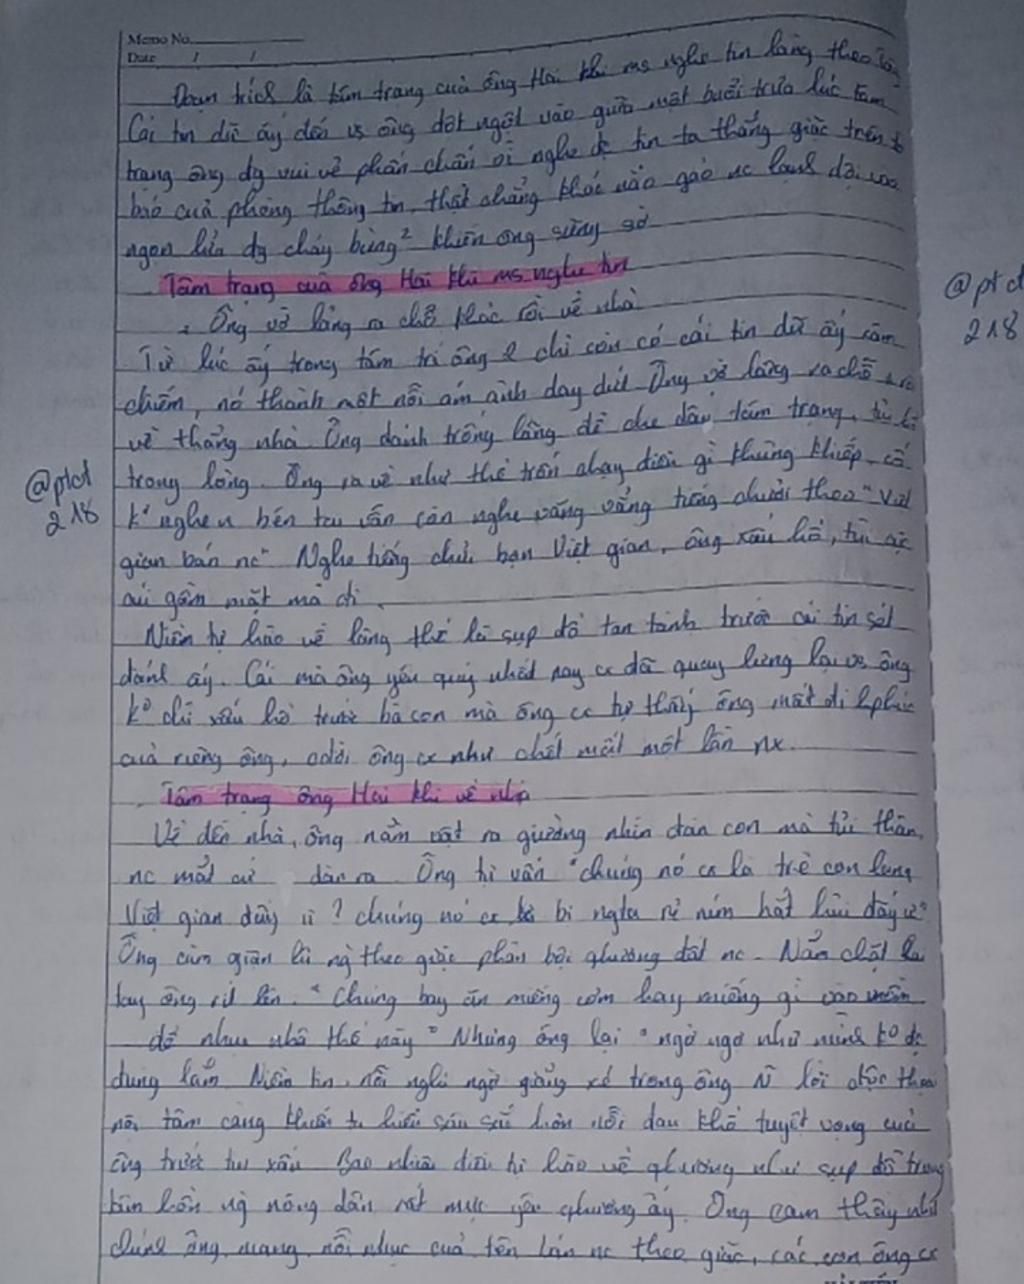 Memo No.
Date / /
Đoạn trích là tâm trạng của ông Hai khi ms nghe tin làng theo
Cái tin dữ ấy đến vs ông đột ngột vào giữa một buổi trưa lúc tâm
trạng ông đg vui vẻ phấn chấn vì nghe đc tin ta thắng giặc trên
báo của phòng thông tin, thật chẳng khác nào gáo nc lạnh dội vào
ngọn lửa đg cháy bừng² khiến ông sững sờ
Tâm trạng của ông Hai khi ms nghe tin
Ông vờ lảng ra chỗ khác rồi về nhà
Từ lúc ấy trong tâm trí ông chỉ còn có cái tin dữ ấy xâm
chiếm, nó thành một nỗi ám ảnh day dứt Ông vờ lảng ra chỗ
về thẳng nhà Ông đánh trống lảng để che dấu tâm trạng,
trong lòng. Ông ra về như thể trốn chạy điều gì khủng khiếp, cố
@ptct
218
k° nghe bên tai vẫn còn nghe văng vẳng tiếng chửi theo "Việt
gian bán nc" Nghe tiếng chửi bọn Việt gian, ông xấu hổ, tủi
gầm mặt mà đi.
Niềm tự hào về làng thế là sụp đổ tan tành trước cái tin sét
đánh ấy. Cái mà ông yêu quý nhất nay cx đã quay lưng lại vs ông
k° chỉ xấu hổ trước bà con mà ông cx tự thấy ông mất đi
của riêng ông, cđời ông cx như chết mất một lần nx.
Tâm trạng ông Hai khi về nhà
Về đến nhà, ông nằm vật ra giường nhìn đàn con mà tủi thân,
nc mắt cứ dàn ra Ông tự vấn "chúng nó cx là trẻ con làng
Việt gian đấy ư? chúng nó cx bị ngta rẻ rúng hắt hủi đấy ư"
Ông căm giận lũ ng theo giặc phản bội qhương đất nc. Nắm chặt
tay ông rít lên. "Chúng bay ăn miếng cơm hay miếng gì vào mồm
để nhục nhã thế này" Nhưng ông lại "ngờ ngợ như mình k° đc
đúng lắm Niềm tin, nỗi nghi ngờ giằng xé trong ông lời độc thoại
nội tâm càng khiến ta hiểu sâu sắc hơn nỗi đau khổ tuyệt vọng của
ông trước tin xấu Bao nhiêu điều tự hào về qhương như sụp đổ trong
tâm hồn ng nông dân rất mực yêu qhương ấy. Ông cảm thấy như
chính ông mang nỗi nhục của tên bán nc theo giặc, các con ông cx
@ptct
218